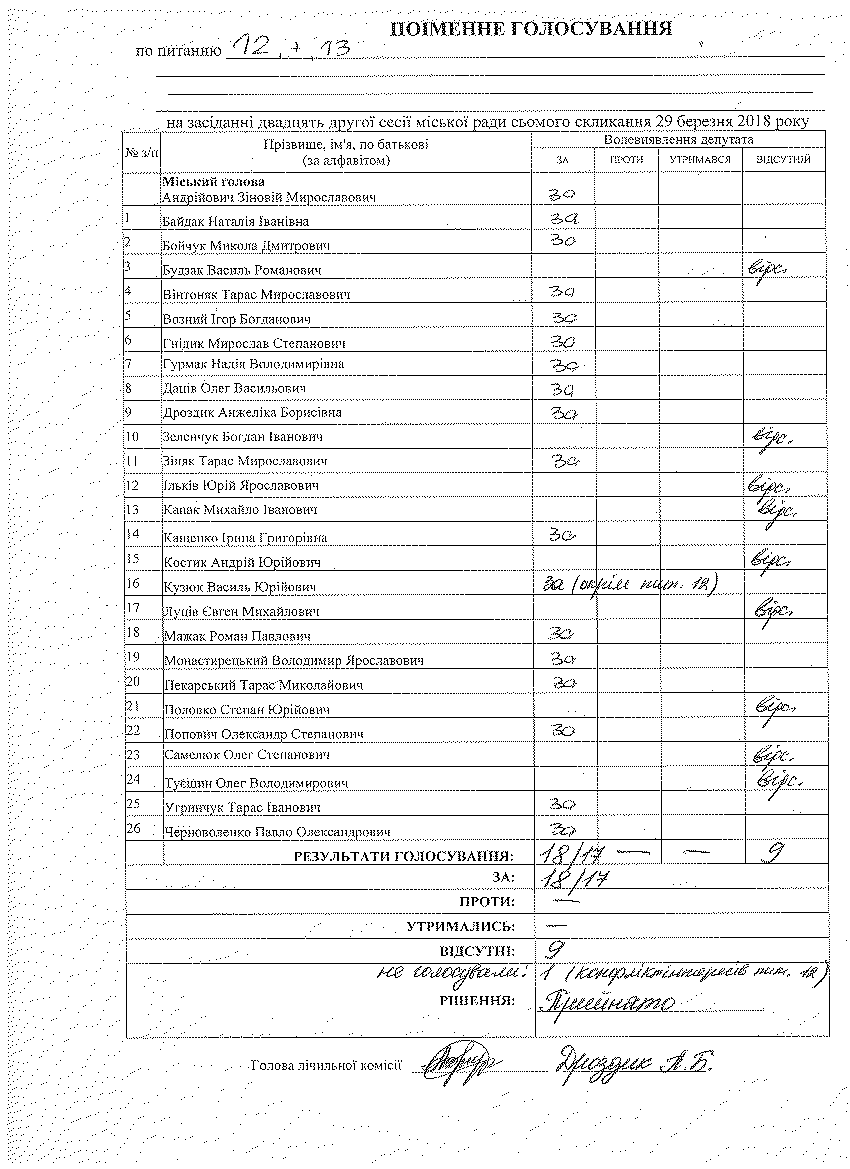 ПОІМЕННЕ ГОЛОСУВАННЯ
по питанню 12, + 13
на засіданні двадцять другої сесії міської ради сьомого скликання 29 березня 2018 року
№ з/п Прізвище, ім'я, по батькові (за алфавітом) Волевиявлення депутата
ЗА ПРОТИ УТРИМАВСЯ ВІДСУТНІЙ
Міський голова
Андрійович Зіновій Мирославович за
1 Байдак Наталія Іванівна за
2 Бойчук Микола Дмитрович за
3 Будзак Василь Романович відс.
4 Вінтоняк Тарас Мирославович за
5 Возний Ігор Богданович за
6 Гнідик Мирослав Степанович за
7 Гурмак Надія Володимирівна за
8 Даців Олег Васильович за
9 Дроздик Анжеліка Борисівна за
10 Зеленчук Богдан Іванович відс.
11 Зіняк Тарас Мирославович за
12 Ільків Юрій Ярославович відс.
13 Капак Михайло Іванович відс.
14 Кащенко Ірина Григорівна за
15 Костик Андрій Юрійович відс.
16 Кузюк Василь Юрійович за (окрім пит. 12)
17 Луців Євген Михайлович відс.
18 Мажак Роман Павлович за
19 Монастирецький Володимир Ярославович за
20 Пекарський Тарас Миколайович за
21 Половко Степан Юрійович відс.
22 Попович Олександр Степанович за
23 Самелюк Олег Степанович відс.
24 Туєшин Олег Володимирович відс.
25 Угринчук Тарас Іванович за
26 Черноволенко Павло Олександрович за
РЕЗУЛЬТАТИ ГОЛОСУВАННЯ: 18/17 — — 9
ЗА: 18/17
ПРОТИ: —
УТРИМАЛИСЬ: —
ВІДСУТНІ: 9
не голосували: 1 (конфлікт інтересів пит. 12)
РІШЕННЯ: Прийнято
Голова лічильної комісії Дроздик А.Б.